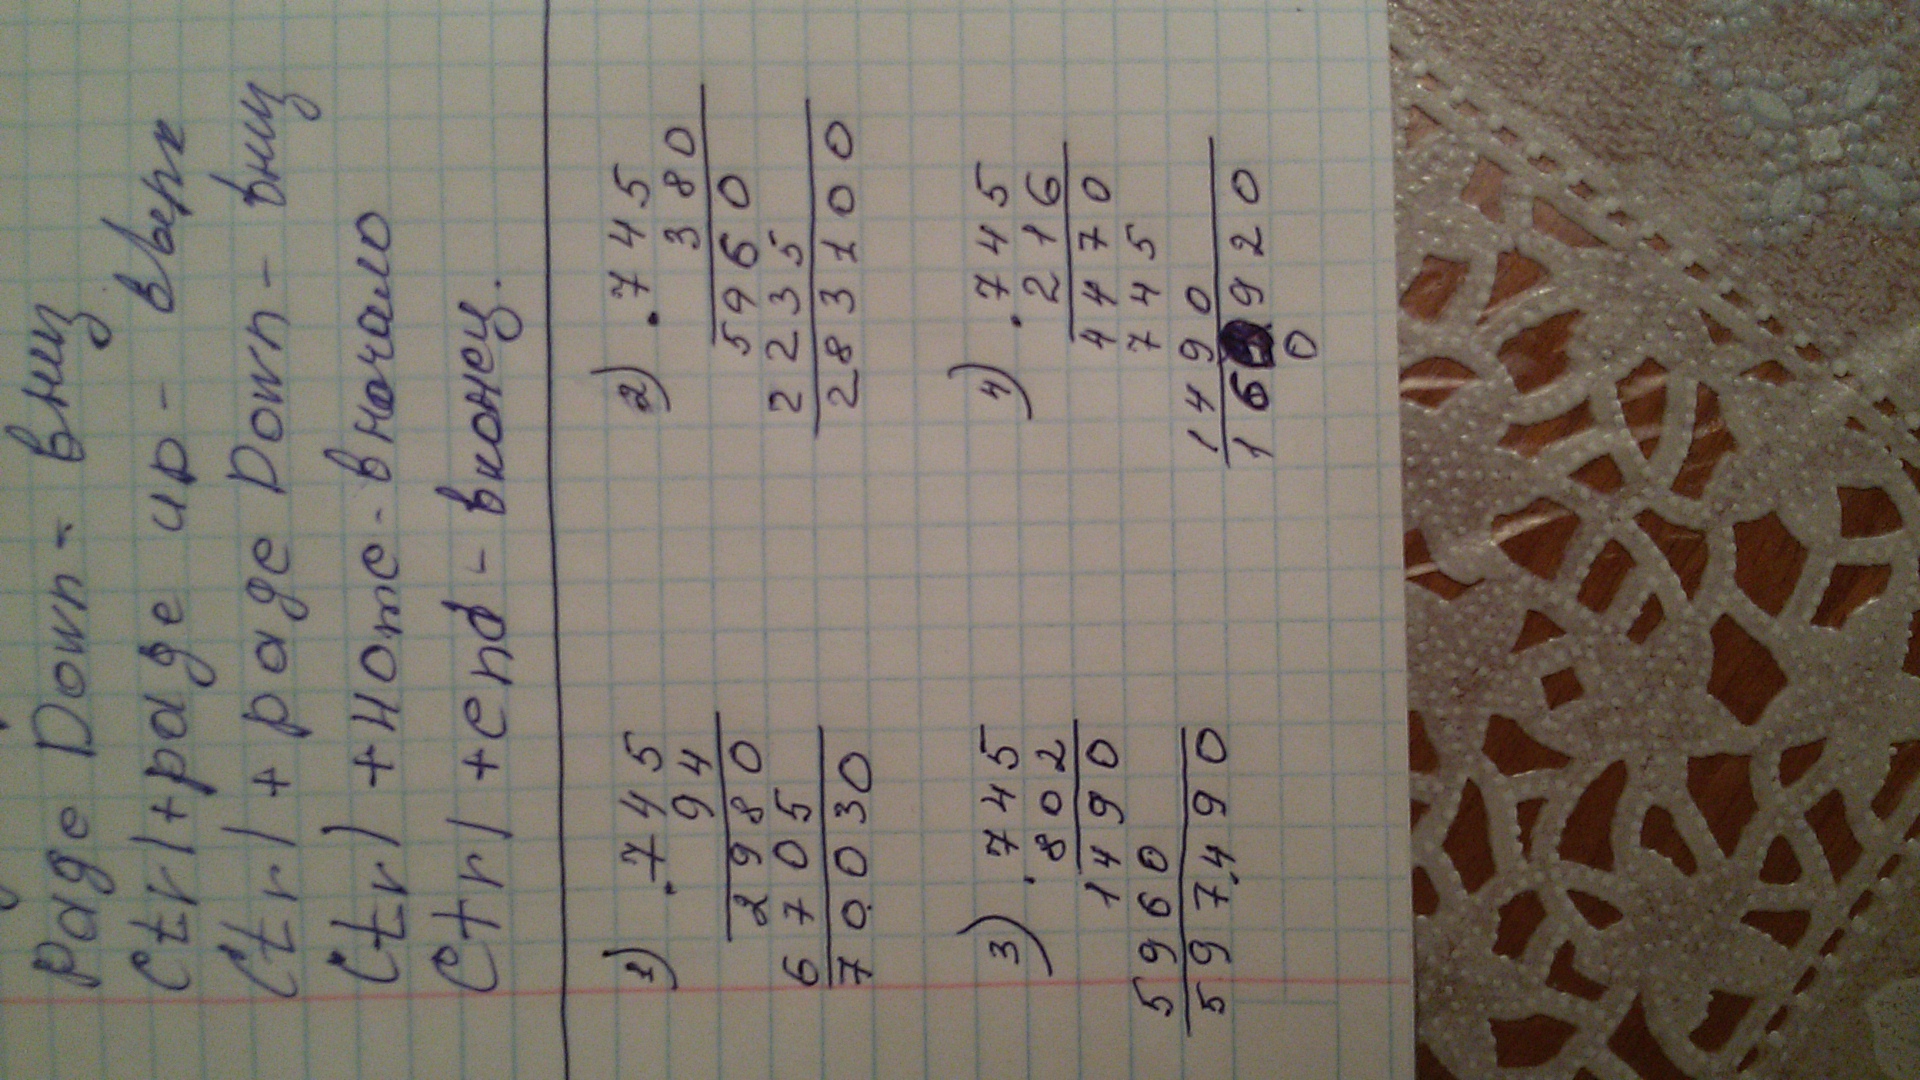 Page Down - вниз
Ctrl+page up - вверх
Ctrl + page Down - вниз
Ctrl + Home - в начало
Ctrl + end - в конец.
1) · 745
94
2980
6705
70030
2) · 745
380
5960
2235
283100
3) · 745
802
1490
5960
597490
4) · 745
216
4470
745
1490
16 920
0